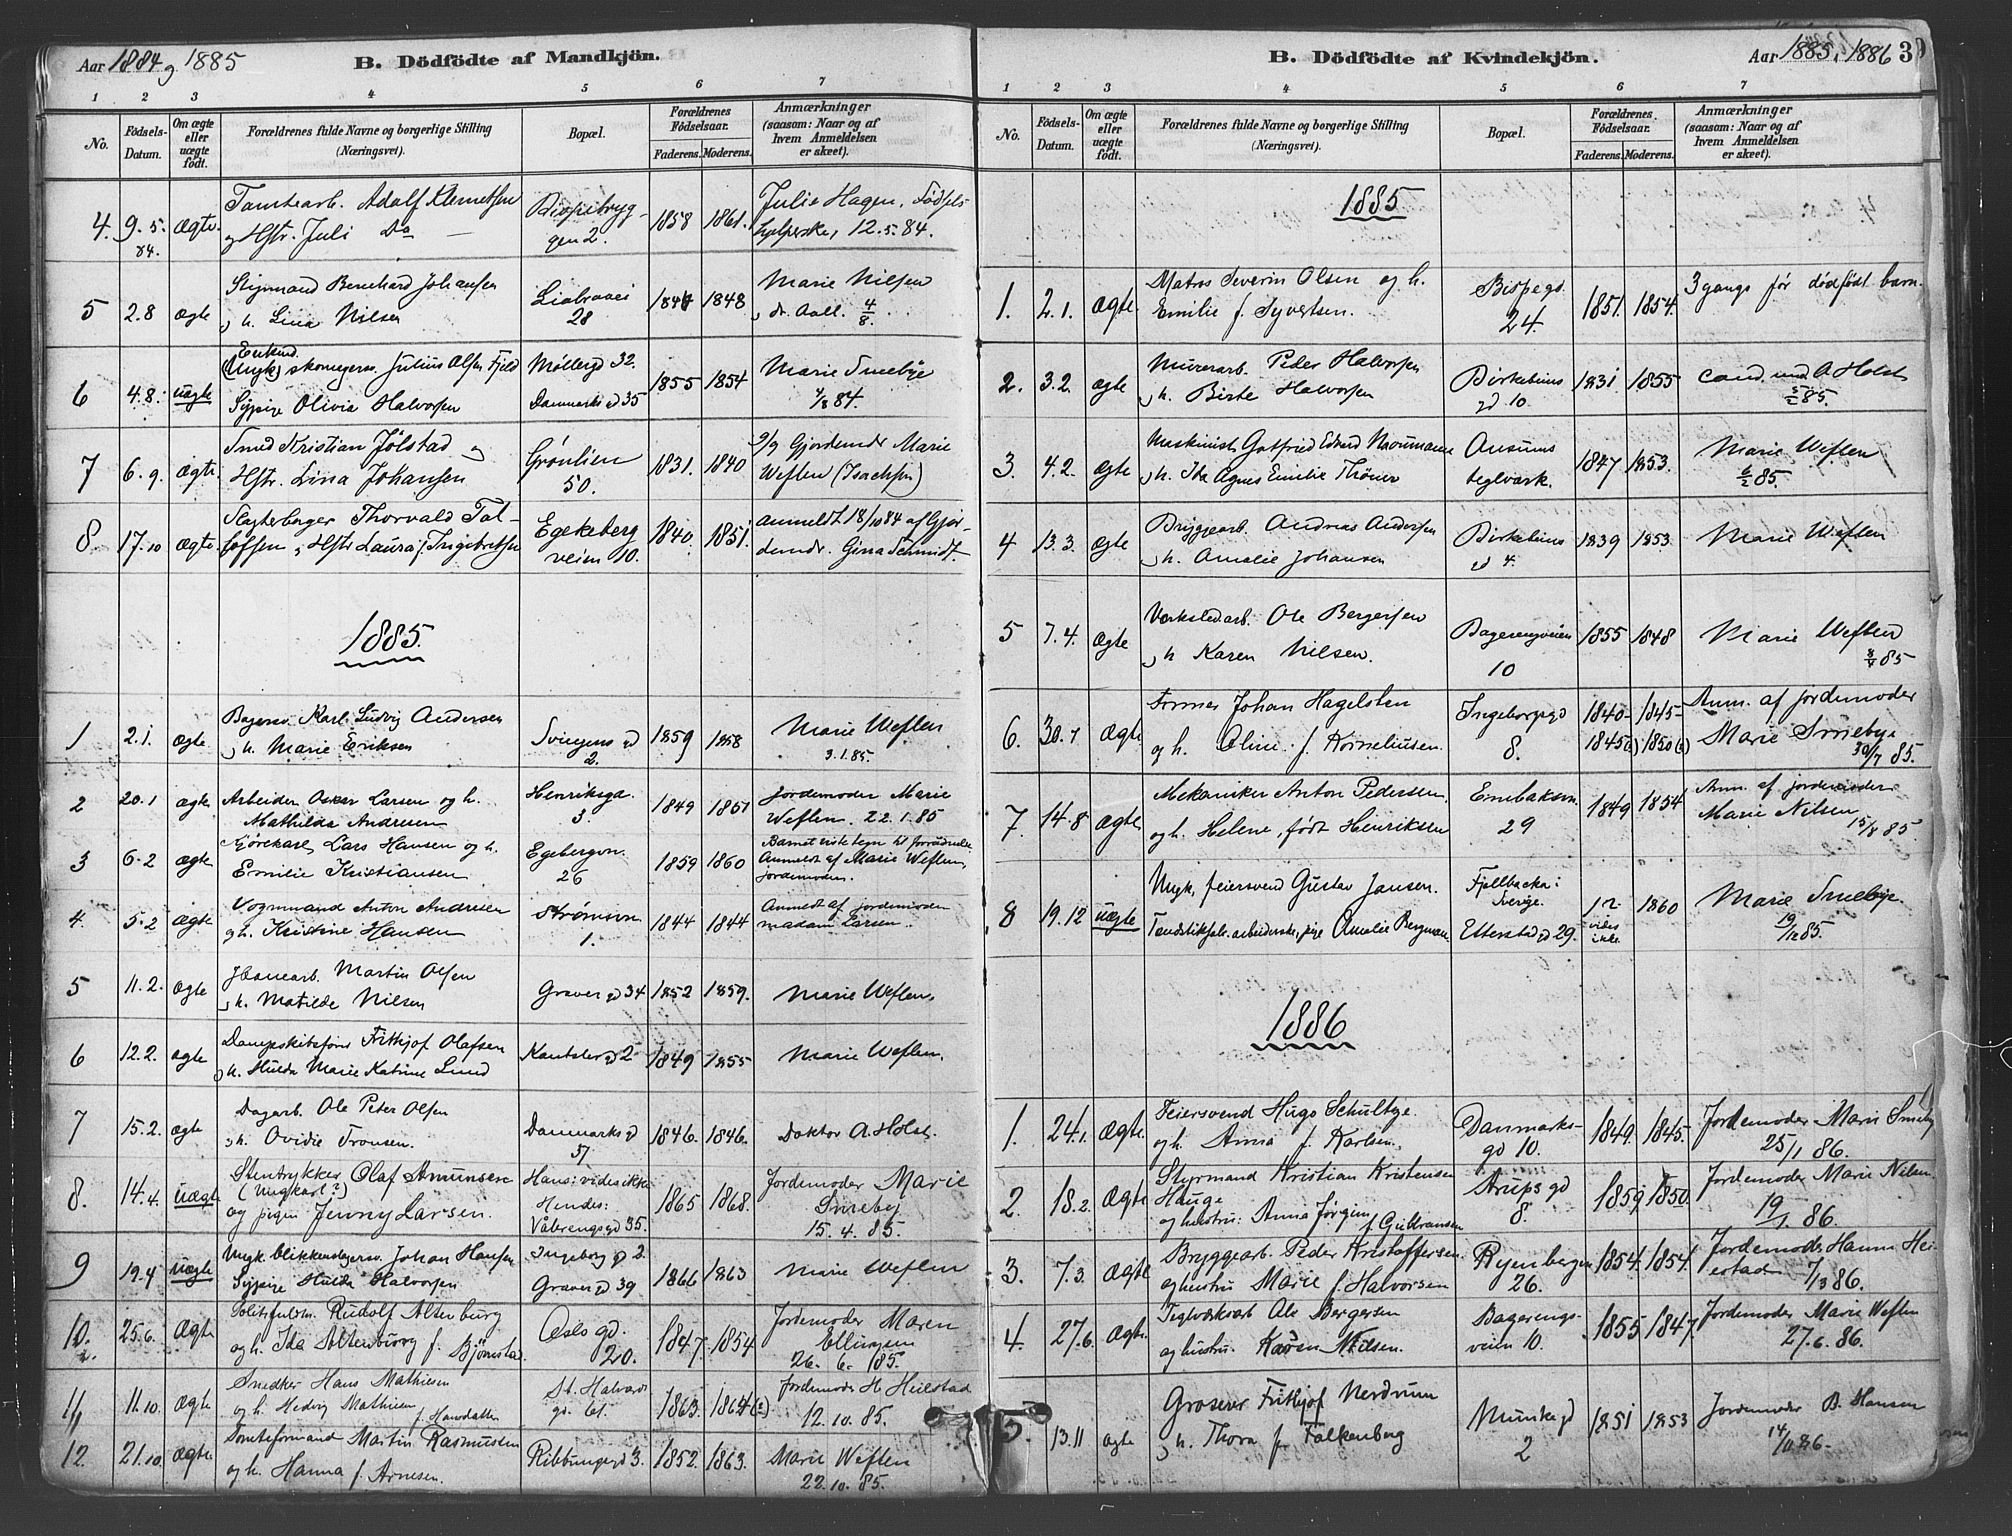 Aar 1884 og 1885
B. Dödfödte af Mandkjön.
1 2 3 4 5 6 7
No.
Födsels-
Datum.
Om ægte
eller
uægte
födt.
Forældrenes fulde Navne og borgerlige Stilling
(Næringsvei).
Bopæl.
Forældrenes
Födselsaar.
Faderens. Moderens.
Anmærkninger
(saasom: Naar og af
hvem Anmeldelsen
er skeet).
4. 9.5. ægte Adolf Klemetsen 1858 1861. Julie Hagen, Fødsels
84. og Hstr. Juli Do gen 2. hjelperske, 12.5.84.
5 2.8 ægte Bernhard Johansen 1848 Marie Nilsen
h. Lina Nilsen 28 4/8.
6 4.8. uægte (Ungk) Julius Olsen Fjeld Møllergd 32. 1855 1854 Marie Smebye
Sypige Olivia Halvorsen Danmarksgd 35 4/8 84.
7 6.9. ægte Smed Kristian Jølstad og Grønlien 1831. 1840 9/9 Gjordemdr Marie
Hstr. Lina Johansen 50. Weflen (Isachsen)
8 17.10 ægte Thorvald Tol- Egeberg 1840 1851. anmeldt 18/10 84 af Gjor-
lofsen, Hstr Laura f. Ingebretsen veien 10. demdr. Gina Schmidt.
1885.
1 2.1. ægte Bagersv. Karl Ludvig Andersen 1859 1858 Marie Weflen
h. Marie Eriksen 2. 3.1.85.
2 20.1 ægte Arbeider Oskar Larsen og h. Henriksgd. 1849 1851 Jordemoder Marie
Mathilda Andresen 3. Weflen. 22.1.85
3 6.2 ægte Kjørekarl Lars Hansen og h. Egebergvn. 1859 1860 Barnet viste tegn til forraadnelse
Emilie Kristiansen 26 Anmeldt af Marie Weflen,
jordemoder.
4. 5.2 ægte Vognmand Anton Andresen Strømsvn. 1844 1844 Anmeldt af jordemoder
og h. Kristine Hansen 1. madam Larsen.
5 11.2. ægte Martin Olsen Gravergd 34 1852 1859.
h. Matilde Nilsen Marie Weflen.
6 12.2. ægte Dampskibsfører Fritjof Olafsen Kantslergd 2 1849 1855 Marie Weflen.
h. Hulda Marie Katrine Lund
7 15.2. ægte Dagarb. Ole Peter Olsen Danmarksgd 1846. 1846. Doktor A. Holst.
h. Ovidie Tronsen. 51
8. 14.4. uægte Stentrykker Olaf Amunsen Hans: vides ikke 1865 1868. Jordemoder Marie
(Ungkarl?) Hendes: Smeby
og pigen Jenny Larsen. Vålerengsgd 35. 15.4.85.
9 19.4 uægte Ungk. blikkenslagersv. Johan Hansen Ingeborggd 2. 1866 1863 Marie Weflen
Sypige Hulda Halvorsen Gravergd 39
10. 25.6. ægte Rudolf Altenburg Oslo gd. 1847. 1854 Jordemoder Maren
og h. Ida Altenburg f. Bjørnstad. 20. Ellingsen
26.6.85.
11 11.10. ægte Snedker Hans Mathiesen St. Halvards 1863. 1864(?) Jordemoder H. Heilstad
og h. Hedvig Mathisen f. Hansdatter gd. 61. 12.10.85.
12. 21.10. ægte Tomteformand Martin Rasmussen Ribbungegd 3. 1852. 1863. Marie Weflen
og h. Hanna f. Arnesen. 22.10.85.
B. Dödfödte af Kvindekjön.
Aar 1885, 1886 39
1 2 3 4 5 6 7
No.
Födsels-
Datum.
Om ægte
eller
uægte
födt.
Forældrenes fulde Navne og borgerlige Stilling
(Næringsvei).
Bopæl.
Forældrenes
Födselsaar.
Faderens. Moderens.
Anmærkninger
(saasom: Naar og af
hvem Anmeldelsen
er skeet).
1885
1. 2.1. ægte Matros Severin Olsen og h. Bispegd. 1851. 1854. 3 gange før dødfødt barn.
Emilie f. Syvertsen. 24.
2. 3.2. ægte Murerarb. Peder Halvorsen Birkebeins 1831 1855 cand. med A Holst
h. Birte Halvorsen gd 10. 5/2 85.
3. 4.2. ægte Maskinist Gotfried Edvard Naumann Ansums 1847 1853. Marie Weflen
h. Ida Agnes Emilie Thöner teglværk. 6/2 85.
4 13.3. ægte Bryggearb. Andreas Andersen Birkebeins 1839 1853 Marie Weflen
h. Amalie Johansen gd 4.
5 7.4. ægte Værkstedarb. Ole Bergersen Bagerengveien 1855 1848 Marie Weflen
h Karen Nilsen. 10 8/4 85
6. 30.7 ægte Former Johan Hagelsten Ingeborggd 1840- 1845- Anm. af jordemoder
og h. Oline f. Korneliusen. 8. 1845(?) 1850(?) Marie Smebye
30/7 85.
7. 14.8 ægte Mekaniker Anton Pedersen Enebakvn. 1849 1854 Anm. af jordemoder
og h. Helene, født Henriksen 29 Marie Nilsen 15/8 85.
8 19.12 uægte Ungk. feiersvend Gustav Jansen. Fjellbacka i 1860 Marie Smebye
Sverige. vides
Tændstikfab. arbeiderske, pige Amalie Bergman. Etterstadgd 29. ikke 19/12 85.
1886
1. 24.1. ægte Feiersvend Hugo Schultze. Danmarks- 1849. 1845. Jordemoder Marie Smeby
og h. Anna f. Karlsen. gd 10. 25/1 86.
2. 18.2. ægte Styrmand Kristian Kristensen Strups gd 1859 1850. Jordemoder Marie Nilsen
Hauge 8. 19/ 86.
og hustru: Anna Jørgine f. Gulbransen
3. 7.3. ægte Bryggearb. Peder Kristoffersen Ryenbergen 1854. 1854. Jordemoder Hanna Hei-
og hustru Marie f. Halvorsen 26. estad 7/3 86.
4. 27.6. ægte Teglværksarb Ole Bergersen Bagerengs- 1855 1847. Jordemoder Marie Weflen
og hustru Karen Nilsen. veien 10. 27.6.86.
5. 13.11 ægte Grosserer Fritjof Nerdrum Munkegd 1851 1853 Jordemoder B. Hansen
h. Thora f. Falkenberg 2 14/11 86.